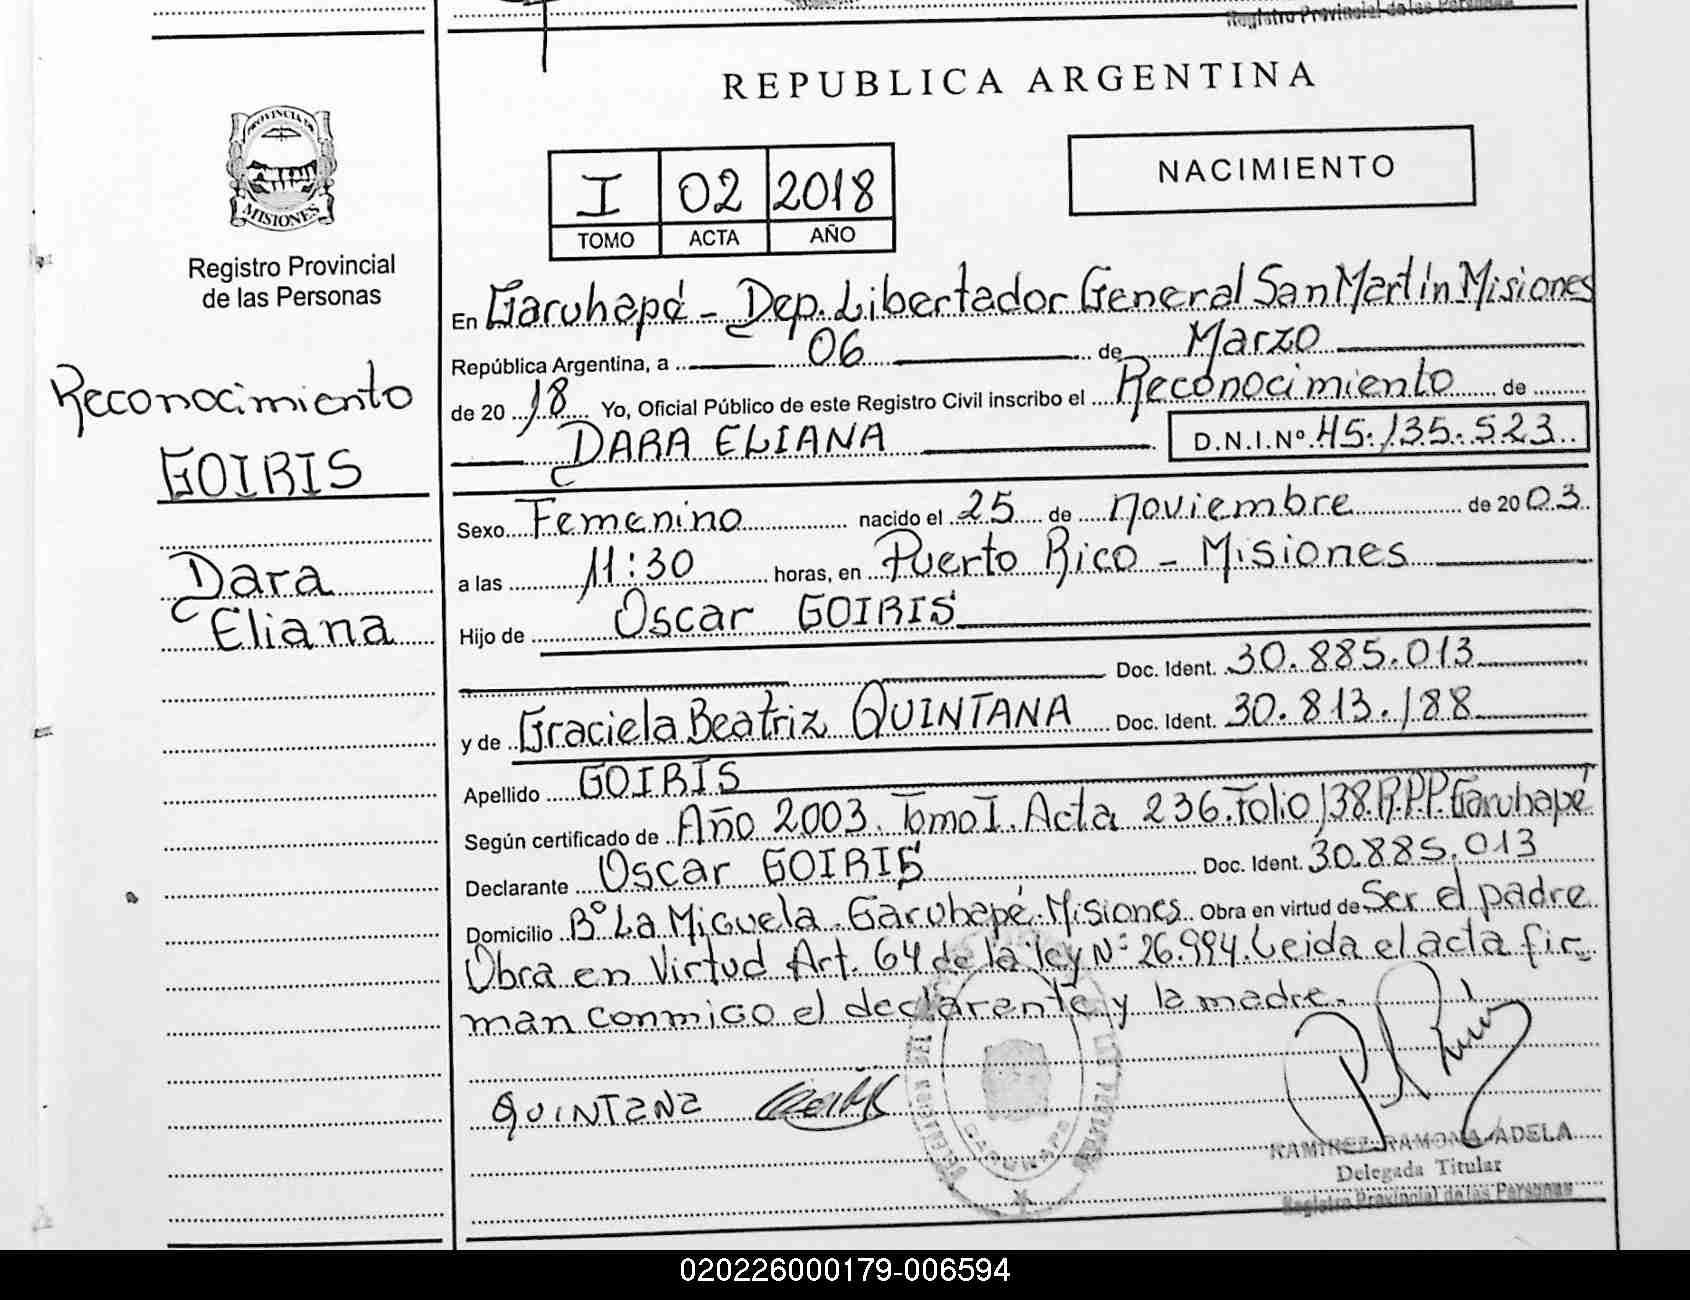 Registro Provincial de las Personas
REPUBLICA ARGENTINA
PROVINCIA DE
MISIONES
Registro Provincial
de las Personas
I 02 2018
TOMO ACTA AÑO
NACIMIENTO
Reconocimiento
GOIRIS
Dara
Eliana
En Garuhapé - Dep. Libertador General San Martín Misiones
República Argentina, a 06 de Marzo
de 20 18 Yo, Oficial Público de este Registro Civil inscribo el Reconocimiento de
DARA ELIANA D.N.I.Nº 45.135.523
Sexo Femenino nacido el 25 de noviembre de 20 03
a las 11:30 horas, en Puerto Rico - Misiones
Hijo de Oscar GOIRIS
Doc. Ident. 30.885.013
y de Graciela Beatriz QUINTANA Doc. Ident. 30.813.188
Apellido GOIRIS
Según certificado de Año 2003. Tomo I. Acta 236. Folio 138. R.P.P. Garuhapé
Declarante Oscar GOIRIS Doc. Ident. 30.885.013
Domicilio Bº La Miguela. Garuhapé. Misiones Obra en virtud de Ser el padre
Obra en Virtud Art. 64 de la ley Nº 26.994. Leida el acta fir
man conmigo el declarante y la madre.
QUINTANA
RAMIREZ RAMONA ADELA
Delegada Titular
Registro Provincial de las Personas
GARUHAPE
020226000179-006594